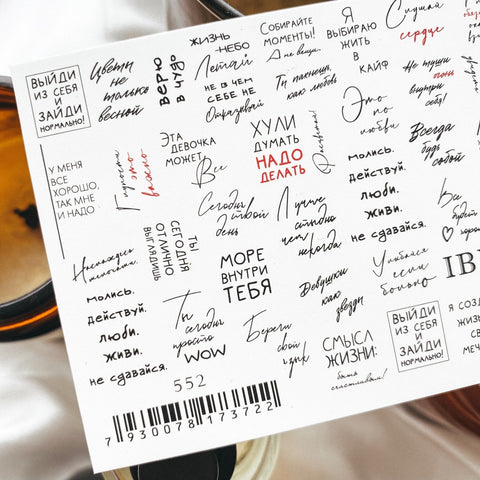 ВЫЙДИ
ИЗ СЕБЯ
И
ЗАЙДИ
НОРМАЛЬНО!
Цветы
не
только
весной
ВЕРЮ
В ЧУДО
ЖИЗНЬ
-НЕБО.
Летай
НЕ В ЧЕМ
СЕБЕ НЕ
Отказывай
СОБИРАЙТЕ
МОМЕНТЫ!
А не вещи.
Ты пахнешь,
как любовь
Я
ВЫБИРАЮ
ЖИТЬ
В
КАЙФ
Слушай
сердце
Не туши
огонь
внутри
себя!
У МЕНЯ
ВСЕ
ХОРОШО,
ТАК МНЕ
И НАДО
Глупости
это
важно
ЭТА
ДЕВОЧКА
МОЖЕТ
Все
ХУЛИ
ДУМАТЬ
НАДО
ДЕЛАТЬ
Это
по
любви
Всегда
будь
собой
молись.
действуй.
люби.
живи.
не сдавайся.
Наслаждайся
моментами.
ТЫ
СЕГОДНЯ
ОТЛИЧНО
ВЫГЛЯДИШЬ
Сегодня
твой
день
Лучше
стыдно
чем
никогда
Все
будет
хорошо
МОРЕ
ВНУТРИ
ТЕБЯ
Девушки
как
звезды
Улыбайся
если
больно
IB
молись.
действуй.
люби.
живи.
не сдавайся.
Ты
сегодня
просто
WOW
Береги
свой
язык
СМЫСЛ
ЖИЗНИ:
быть
счастливым!
ВЫЙДИ
ИЗ СЕБЯ
И
ЗАЙДИ
НОРМАЛЬНО!
Я СОЗД
ЖИЗН
СВО
МЕЧ
552
7 930078 173722